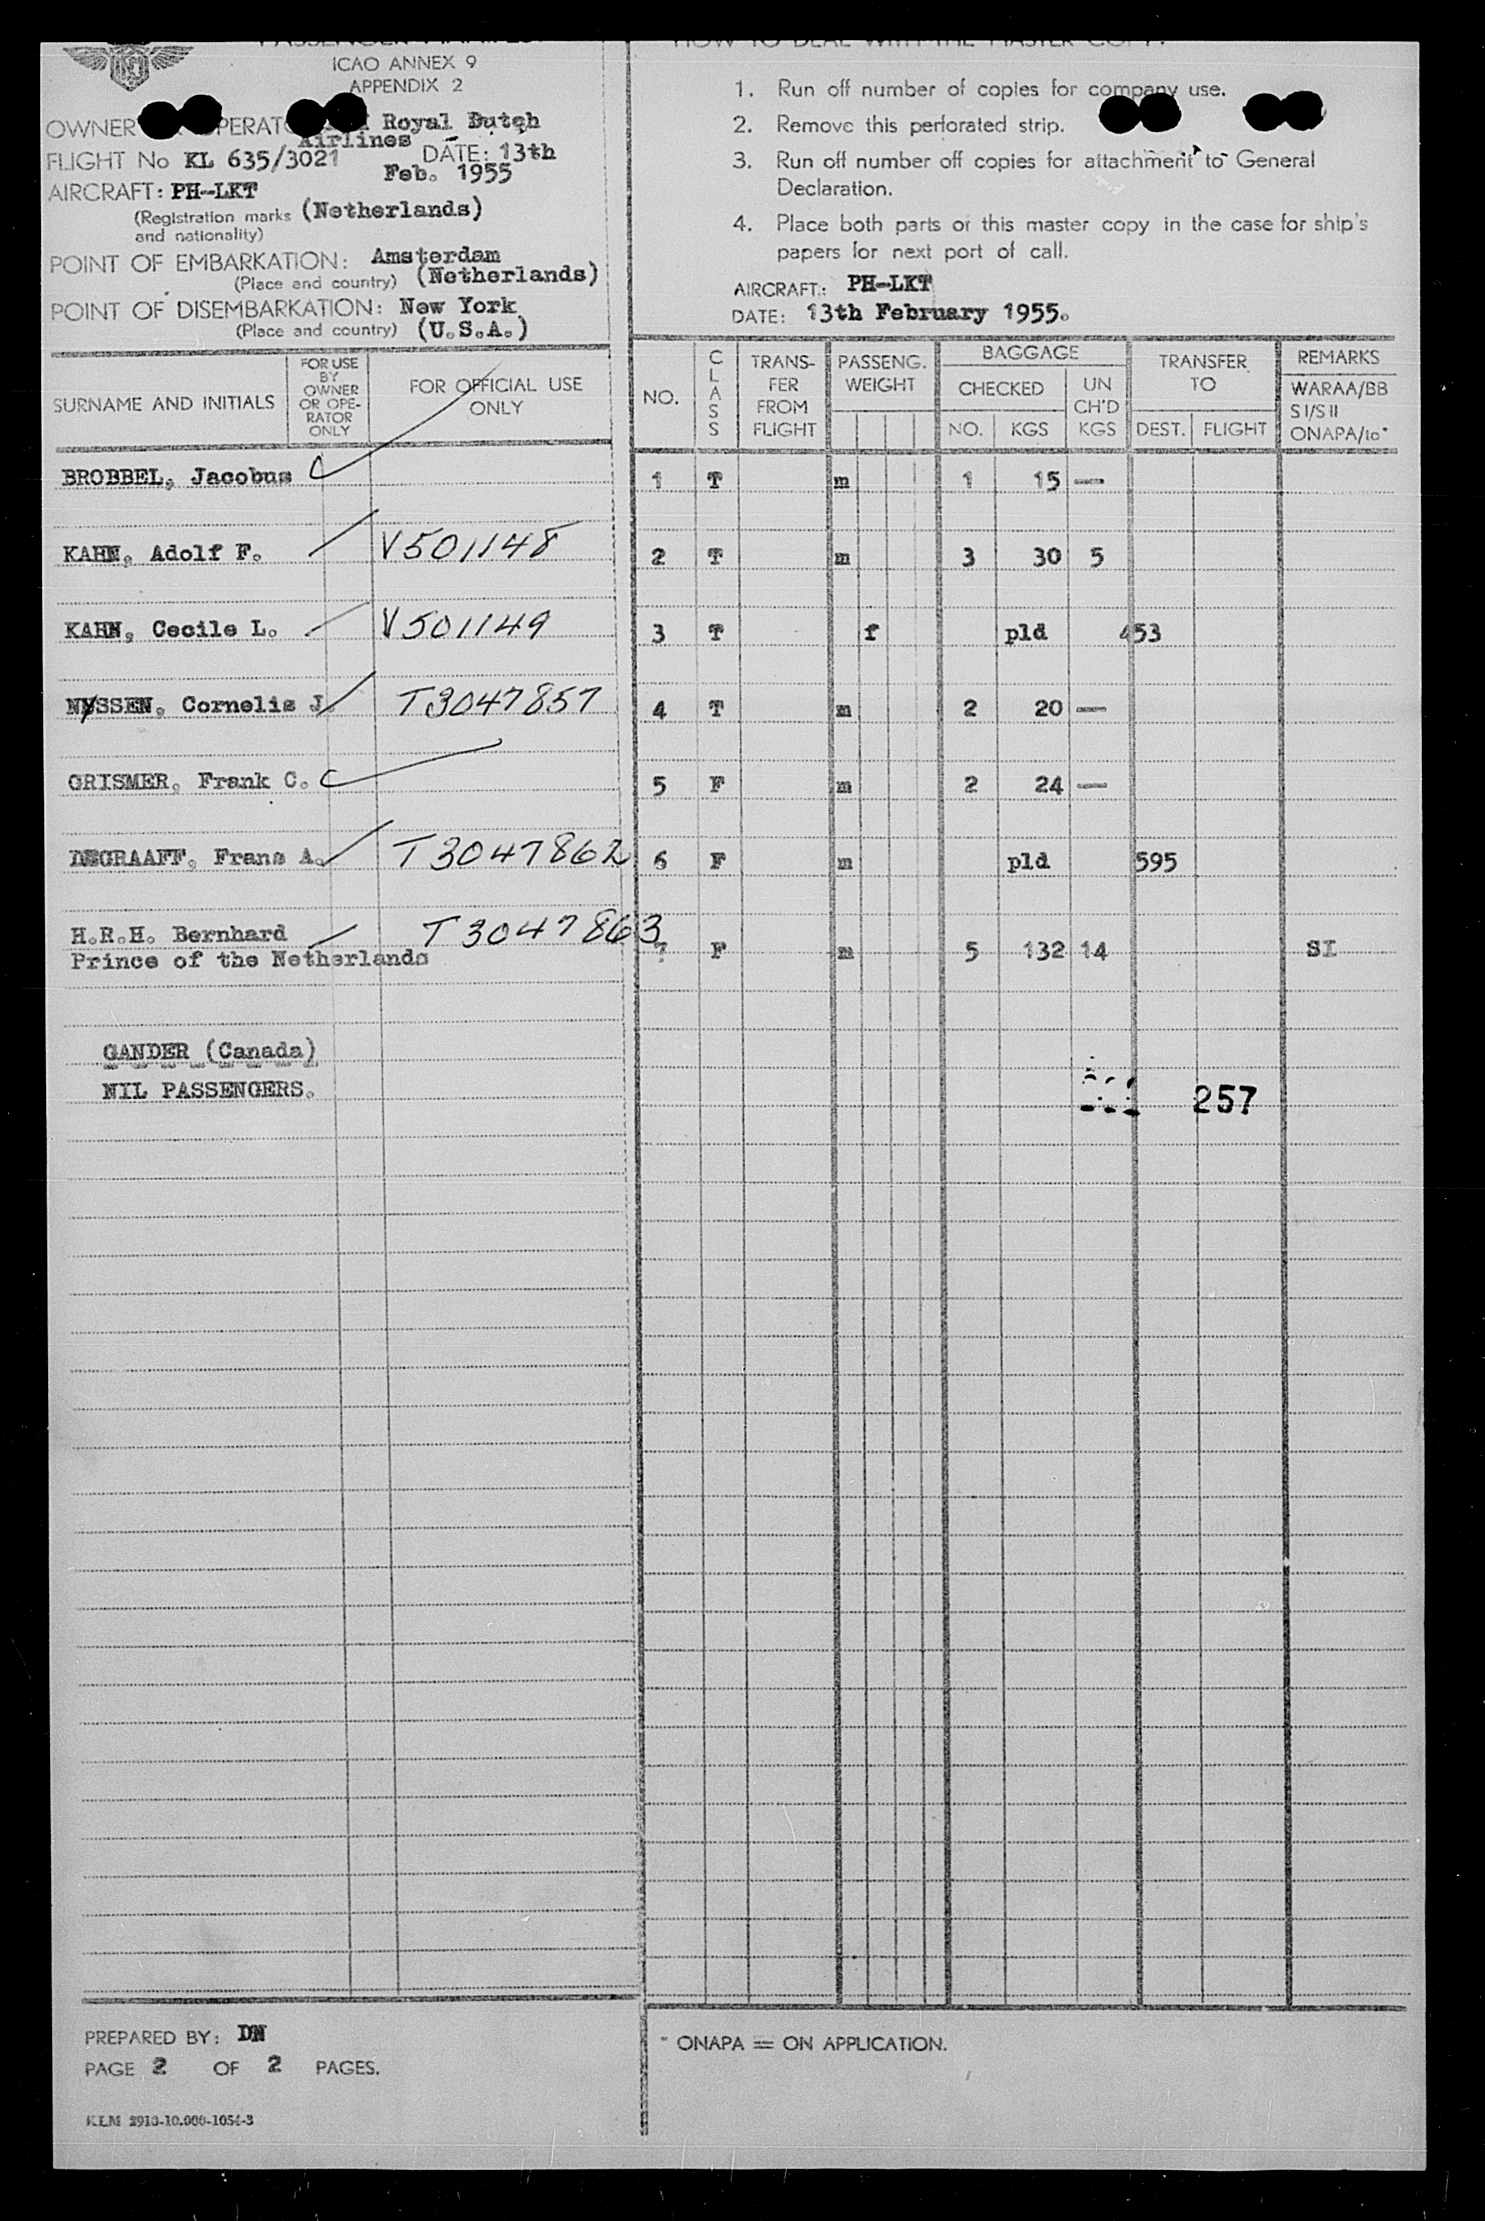 ICAO ANNEX 9
APPENDIX 2
OWNER Royal Dutch
Airlines
FLIGHT No KL 635/3021 DATE: 13th
Feb. 1955
AIRCRAFT: PH-LKT
(Registration marks (Netherlands)
and nationality)
POINT OF EMBARKATION: Amsterdam
(Place and country) (Netherlands)
POINT OF DISEMBARKATION: New York
(Place and country) (U.S.A.)
SURNAME AND INITIALS
FOR USE
BY
OWNER
OR OPE-
RATOR
ONLY
FOR OFFICIAL USE
ONLY
BROBBEL, Jacobus
KAHN, Adolf F. V501148
KAHN, Cecile L. V501149
NYSSEN, Cornelis J T3047857
GRISMER, Frank C.
DEGRAAFF, Frans A. T3047862
H.R.H. Bernhard T3047863
Prince of the Netherlands
GANDER (Canada)
NIL PASSENGERS.
PREPARED BY: DN
PAGE 2 OF 2 PAGES.
KLM 2910-10.000-1054-3
HOW TO DEAL WITH THE MASTER COPY.
1. Run off number of copies for company use.
2. Remove this perforated strip.
3. Run off number off copies for attachment to General
Declaration.
4. Place both parts of this master copy in the case for ship's
papers for next port of call.
AIRCRAFT: PH-LKT
DATE: 13th February 1955.
NO.
CLASS
TRANS-
FER
FROM
FLIGHT
PASSENG.
WEIGHT
BAGGAGE
CHECKED
NO. KGS
UN
CH'D
KGS
TRANSFER
TO
DEST. FLIGHT
REMARKS
WARAA/BB
S I/S II
ONAPA/to*
1 T m 1 15 —
2 T m 3 30 5
3 T f pld 453
4 T m 2 20 —
5 F m 2 24 —
6 F m pld 595
7 F m 5 132 14 SI
257
* ONAPA = ON APPLICATION.